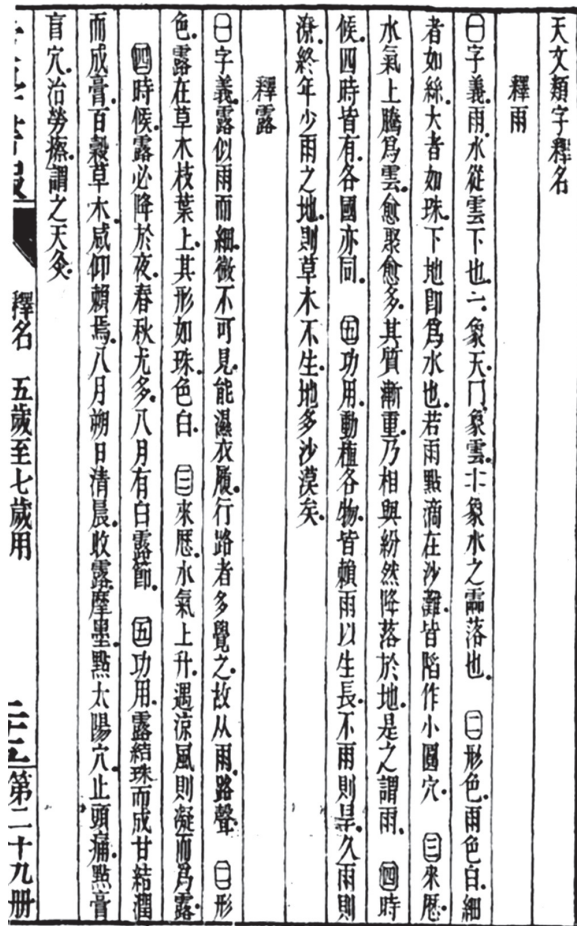 天文類字釋名
釋雨
㊀字義．雨水從雲下也．一．象天．冂．象雲．象水之霝落也．　㊁形色．雨色白．細
者如絲．大者如珠．下地卽爲水也．若雨點滴在沙灘．皆陷作小圓穴．　㊂來厯．
水氣上騰爲雲．愈聚愈多．其質漸重．乃相與紛然降落於地．是之謂雨．　㊃時
候．四時皆有．各國亦同．　㊄功用．動植各物．皆賴雨以生長．不雨則旱．久雨則
潦．終年少雨之地．則草木不生．地多沙漠矣．
釋露
㊀字義．露似雨而細．微不可見．能濕衣履．行路者多覺之．故从雨．路聲．　㊁形
色．露在草木枝葉上．其形如珠．色白．　㊂來厯．水氣上升．遇涼風則凝而爲露．
㊃時候．露必降於夜．春秋尤多．八月有白露節．　㊄功用．露結珠而成甘．結潤
而成膏．百穀草木．咸仰賴焉．八月朔日清晨．收露摩墨．點太陽穴．止頭痛．點膏
肓穴．治勞瘵．謂之天灸．
釋名　五歲至七歲用
第二十九册